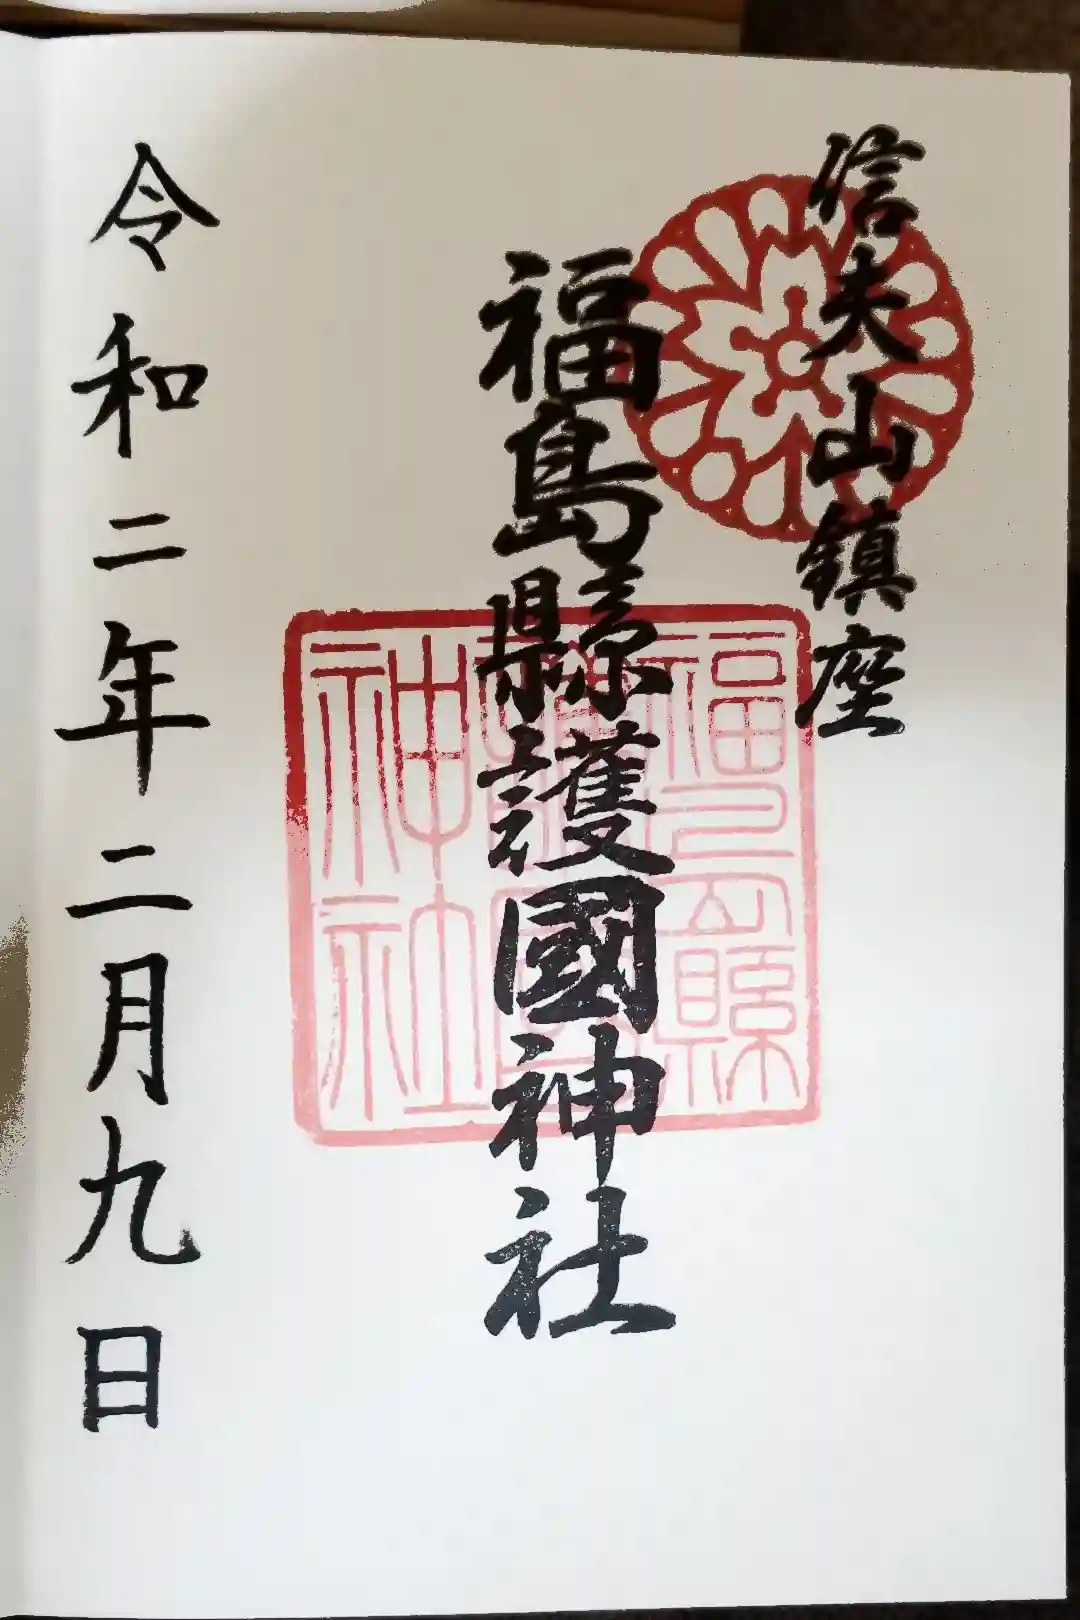 信夫山鎮座
福島縣護國神社
福島縣
護國
神社
令和二年二月九日